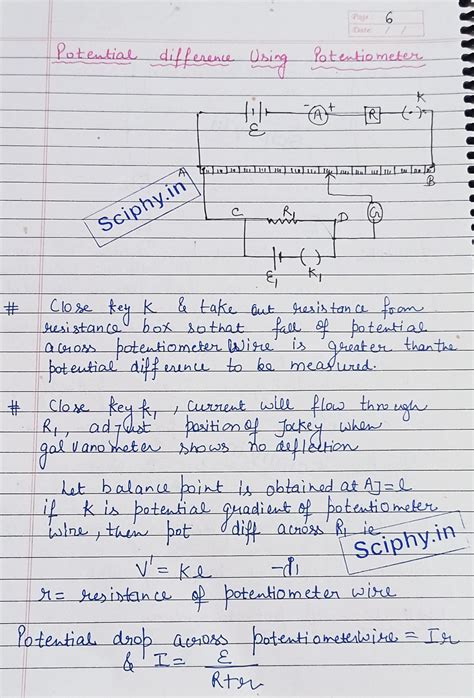 Page 6
Date / /
Potential difference Using Potentiometer
- A + R (-) K
ε
A
B
Sciphy.in
C R1 D G
ε1 ( ) K1
# Close key K & take out resistance from
resistance box so that fall of potential
across potentiometer wire is greater than the
potential difference to be measured.
# Close key K1, current will flow through
R1, adjust position of Jockey when
galvanometer shows no deflection
Let balance point is obtained at AJ=l
if K is potential gradient of potentiometer
wire, then pot diff across R1 ie
Sciphy.in
V' = Kl
r = resistance of potentiometer wire
Potential drop across potentiometer wire = Ir
& I = ε
R+r